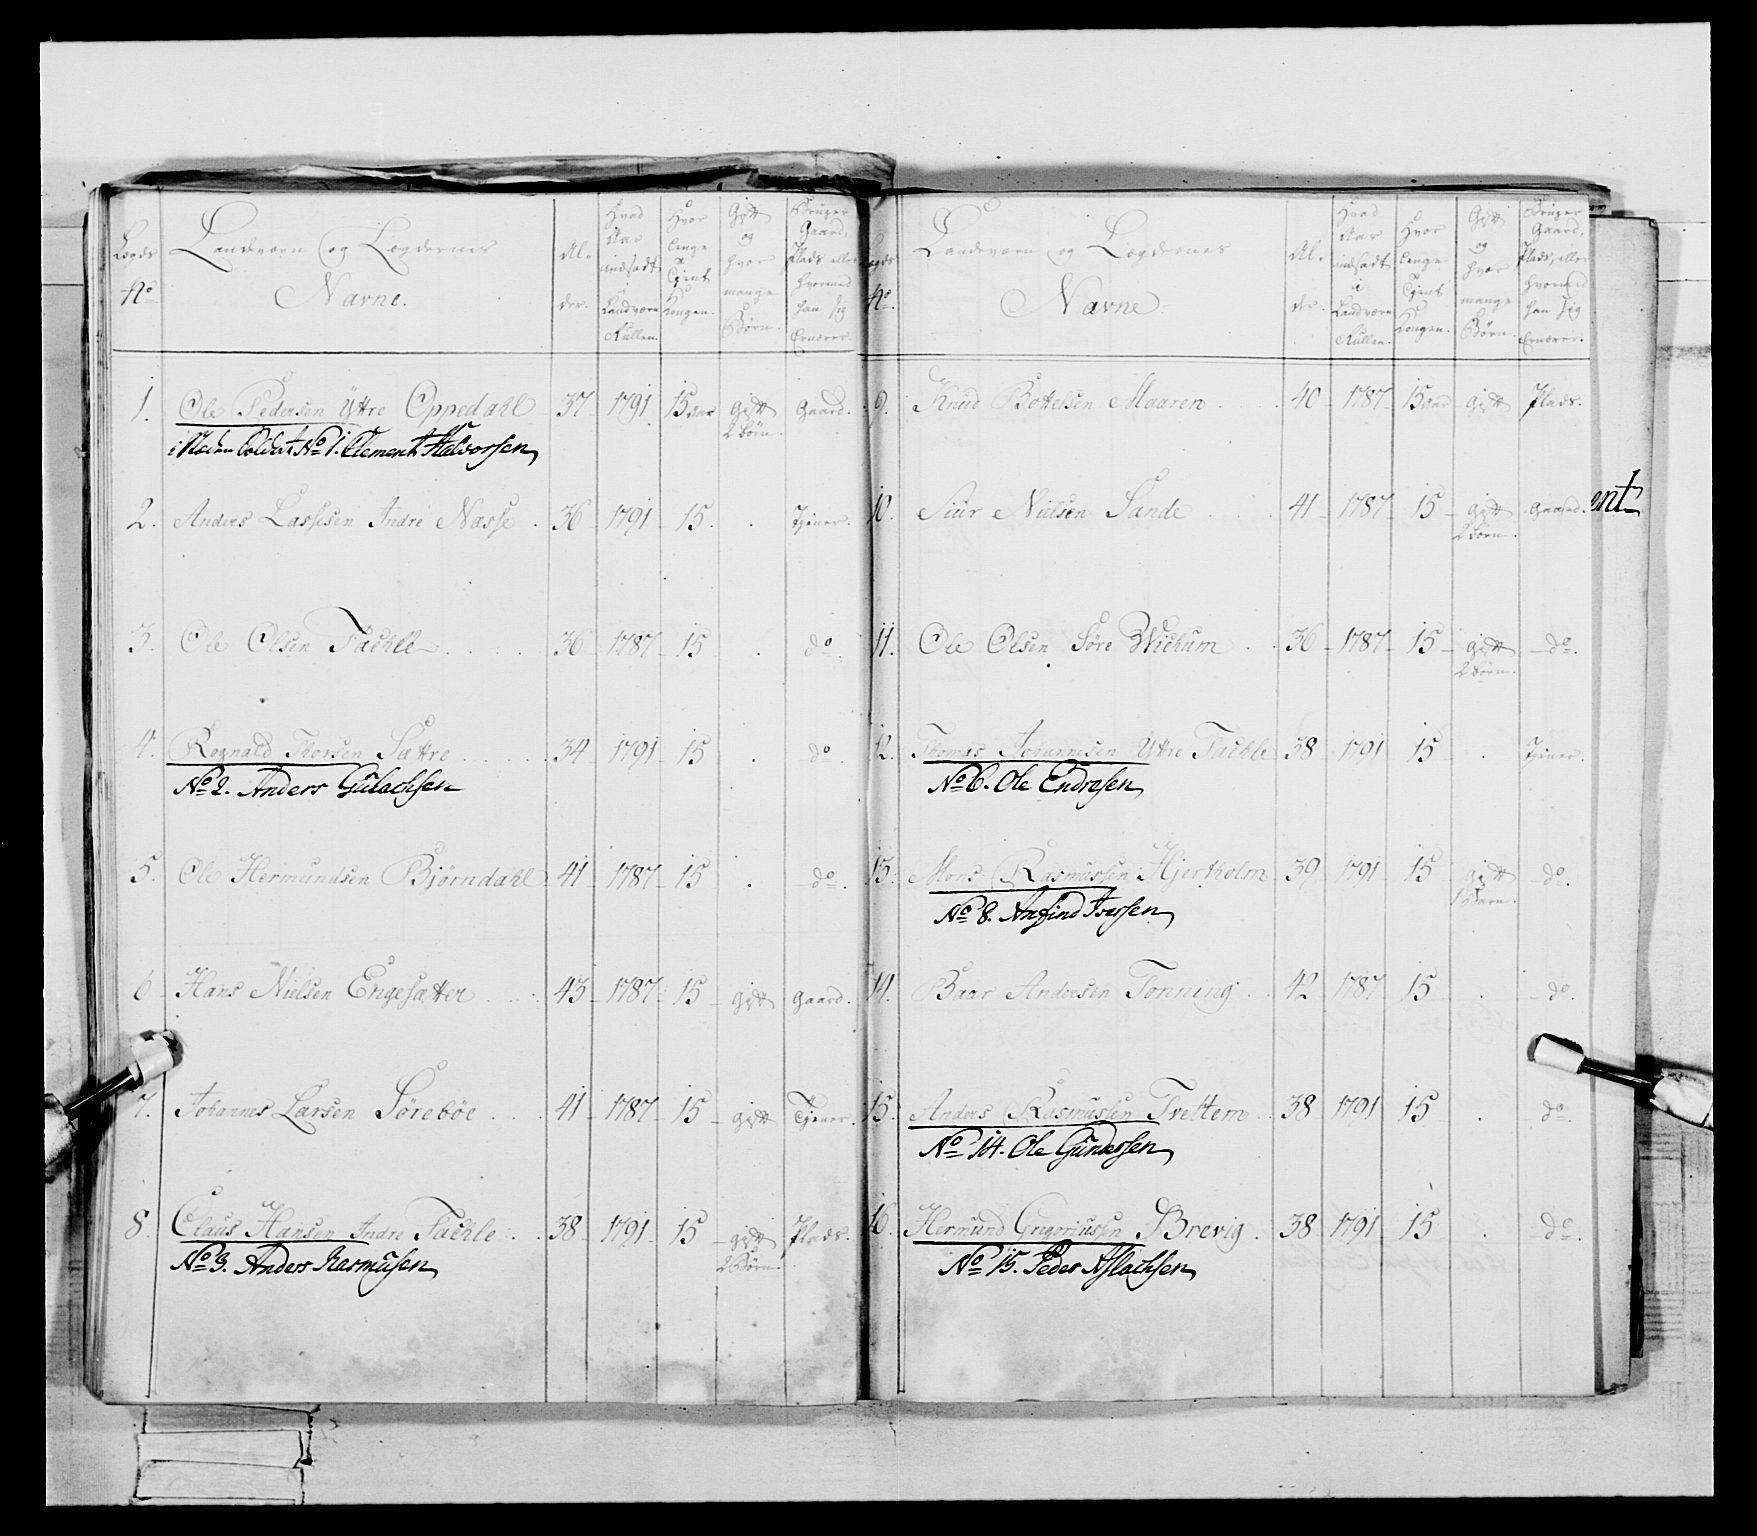 Lægds No
Landværn og Lægdernes Navne.
Al- der.
Hvad Aar indsadt i Landværn Rullen.
Hvor lenge Tjent Kongen.
Gift og hvor mange Børn.
Bruger Gaard, Plads eller hvormed han sig Ernærer.
1. Ole Pedersen Yttre Oppedahl 37 1791 15 aar gift 2 Børn. Gaard.
i Stæden Soldat No 1. Clement Halvorsen
2. Anders Lassesen Indre Næsse 36 1791 15 . Tjener.
3. Ole Olsen Tachle 36 1787 15 . do.
4. Rognald Thorsen Sættre 34 1791 15 . do.
No 2. Anders Gulachsen
5. Ole Hermundsen Bjørndahl 41 1787 15 . do.
6 Hans Nielsen Engesætter 43 1787 15 gift Gaard.
7. Johannes Larsen Sørebøe 41 1787 15 gift Tjener.
8. Claus Hansen Indre Tachle 38 1791 15 gift 2 Børn. Plads.
No 3. Anders Rasmusen
Lægds No.
Landværn og Lægdernes Navne.
Al- der.
Hvad Aar indsadt i Landværn Rullen.
Hvor lenge Tjent Kongen.
Gift og hvor mange Børn.
Bruger Gaard, Plads, eller hvormed han sig Ernærer.
9. Knud Bottelsen Maaren 40 1787 15 aar gift Plads.
10. Siur Nielsen Sande 41 1787 15 gift 2 Børn. Gaard.
ent
11. Ole Olsen Søre Wichum 36 1787 15 gift 2 Børn. do.
12. Thomas Johannesen Yttre Tachle 38 1791 15 . Tjener.
No 6. Ole Endresen
13. Mons Rasmussen Hjertholm 39 1791 15 gift 1 Barn. do.
No 8. Anfind Iversen
14. Baar Andersen Tonning 42 1787 15 . do.
15. Anders Rasmussen Trettem 38 1791 15 . do.
No 14. Ole Gundersen
16. Hermund Grigoriussen Brevig 38 1791 15 . do.
No 15. Peder Aslachsen